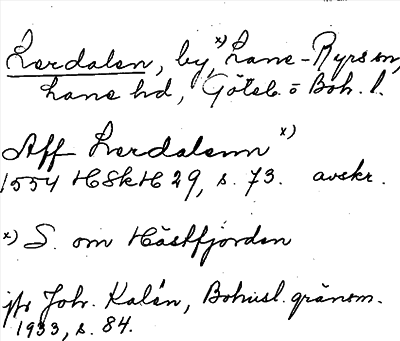 Lerdalen, by, x) Lane-Ryrs sn,
Lane hd, Göteb. o Boh. l.
Aff Lerdalenn x)
1554 HSkH 29, s. 73. avskr.
x) S. om Hästfjorden
jfr Joh. Kalén, Bohusl. gränsm.
1933, s. 84.